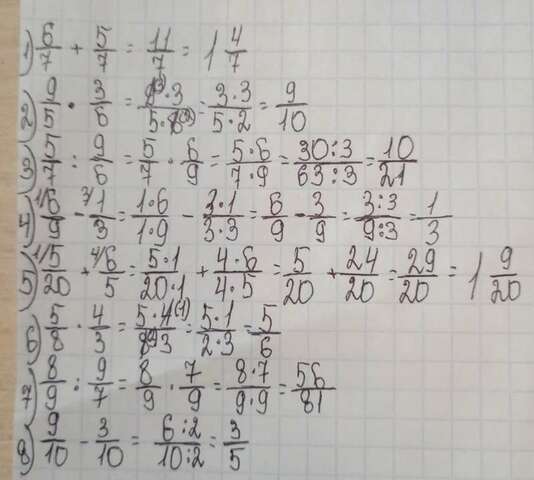 1) 6/7 + 5/7 = 11/7 = 1 4/7
2) 9/5 · 3/6 = 9(3)·3/5·6(2) = 3·3/5·2 = 9/10
3) 5/7 : 9/6 = 5/7 · 6/9 = 5·6/7·9 = 30:3/63:3 = 10/21
4) 1/6/9 - 3/1/3 = 1·6/1·9 - 3·1/3·3 = 6/9 - 3/9 = 3:3/9:3 = 1/3
5) 1/5/20 + 4/6/5 = 5·1/20·1 + 4·6/4·5 = 5/20 + 24/20 = 29/20 = 1 9/20
6) 5/8 · 4/3 = 5·4(1)/8(2)·3 = 5·1/2·3 = 5/6
7) 8/9 : 9/7 = 8/9 · 7/9 = 8·7/9·9 = 56/81
8) 9/10 - 3/10 = 6:2/10:2 = 3/5